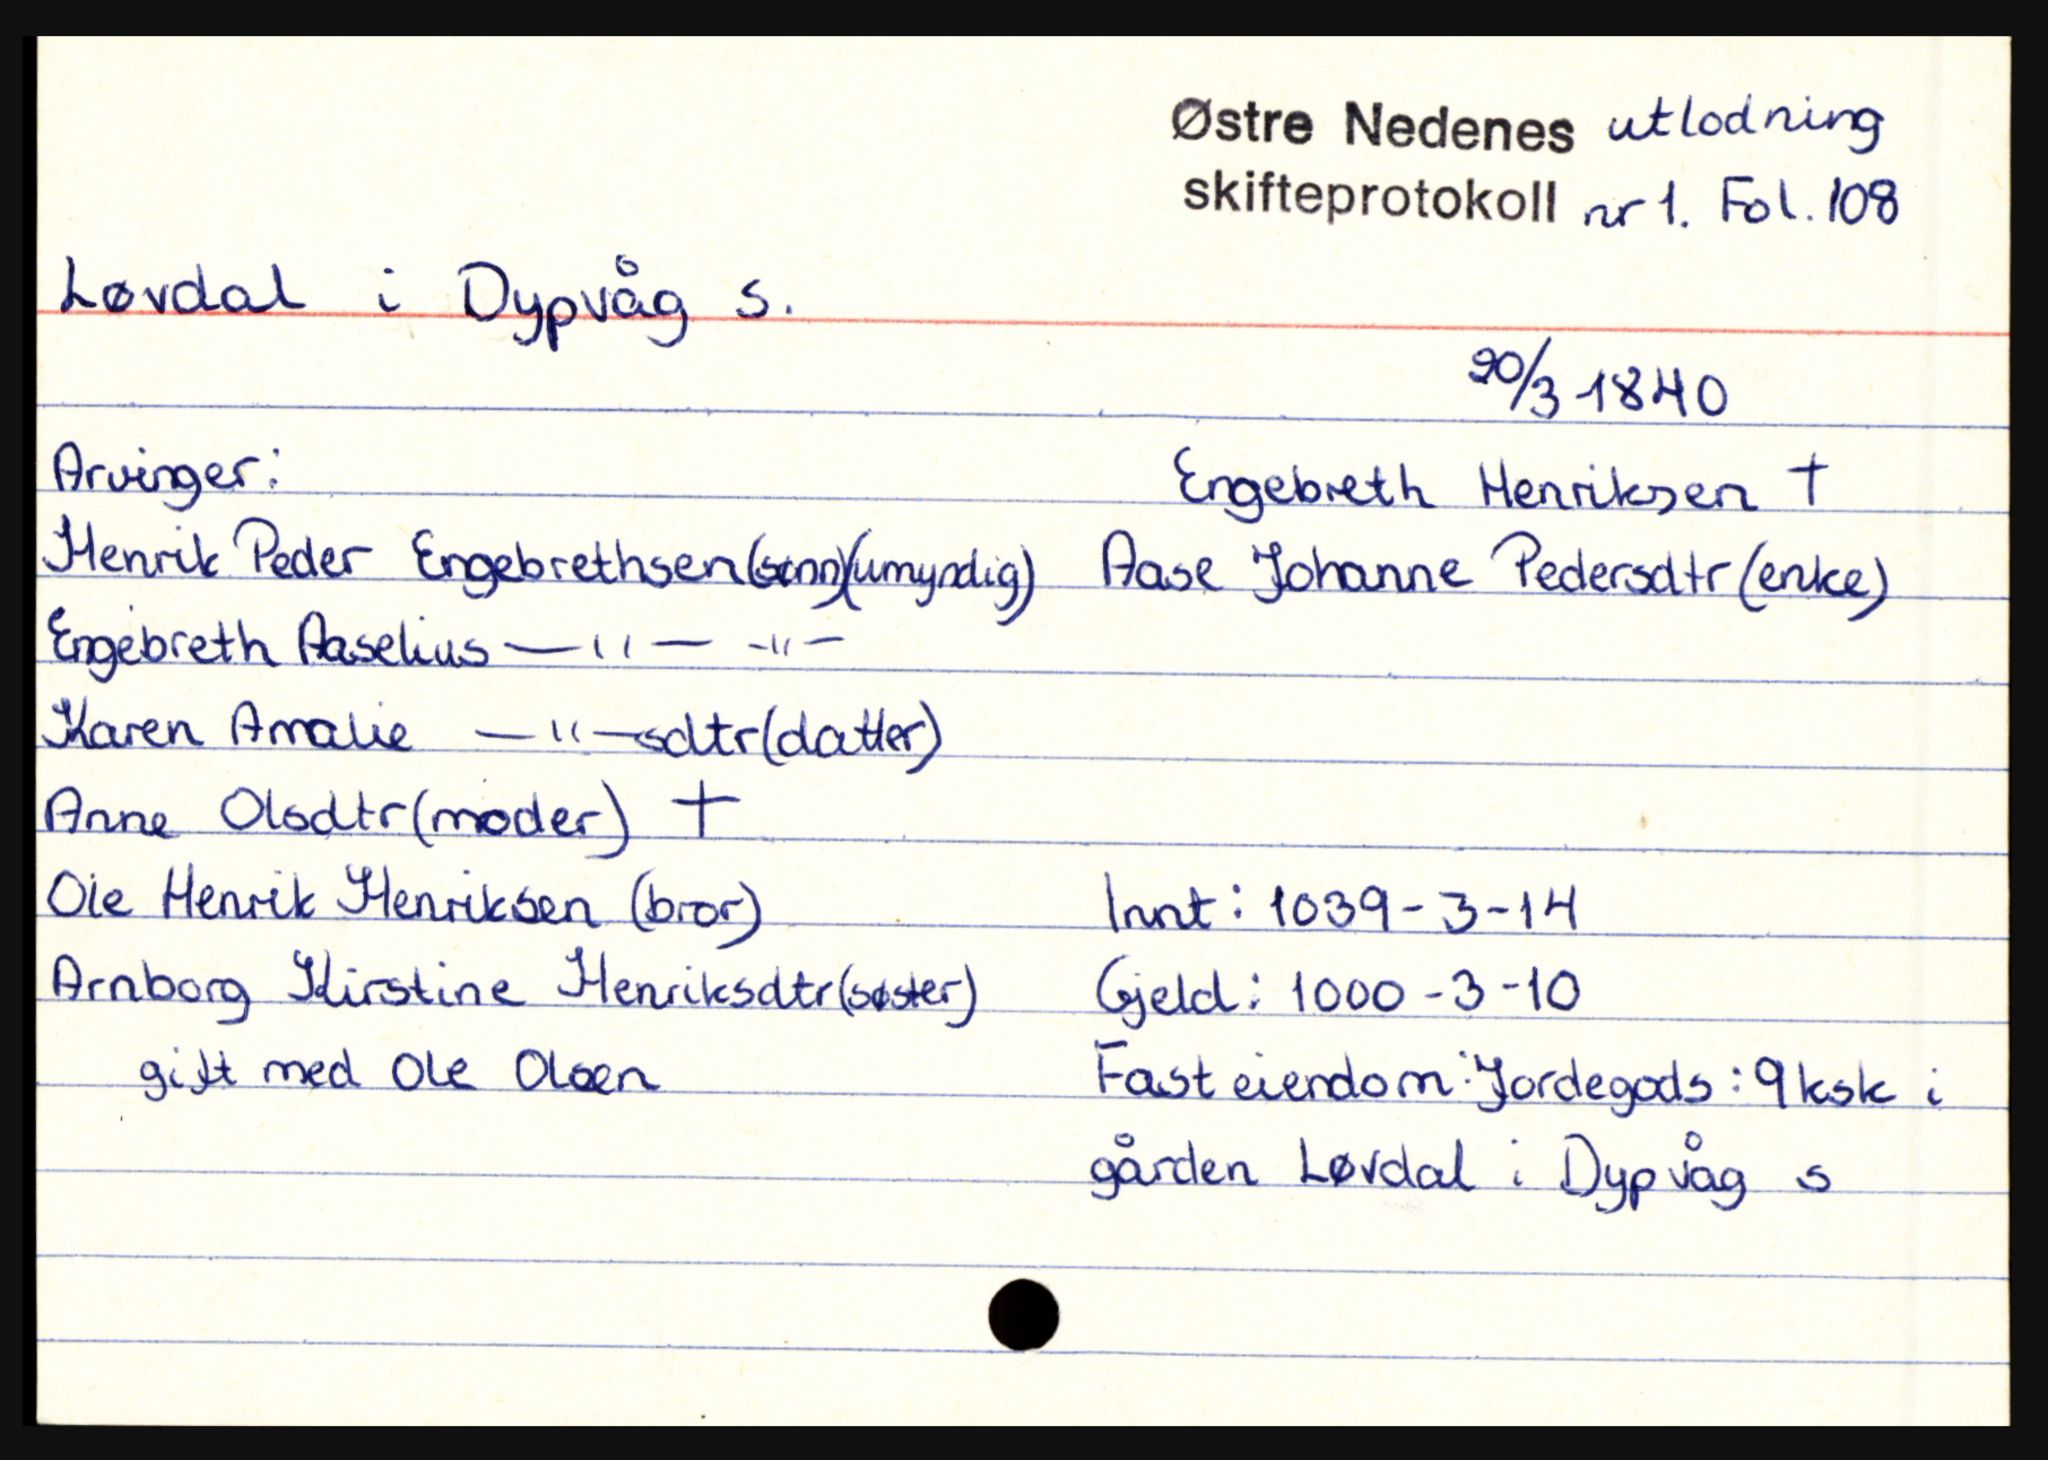 Østre Nedenes utlodning
skifteprotokoll nr 1. Fol. 108
Løvdal i Dypvåg s.
20/3-1840
Arvinger:
Henrik Peder Engebrethsen (sønn)(umyndig)
Engebreth Aaselius —"— -"-
Karen Amalie —"—sdtr (datter)
Anne Olsdtr (moder) †
Ole Henrik Henriksen (bror)
Arnborg Kirstine Henriksdtr (søster)
gift med Ole Olsen
Engebreth Henriksen †
Aase Johanne Pedersdtr (enke)
Innt: 1039-3-14
Gjeld: 1000-3-10
Fast eiendom: Jordegods: 9 ksk i
gården Løvdal i Dypvåg s